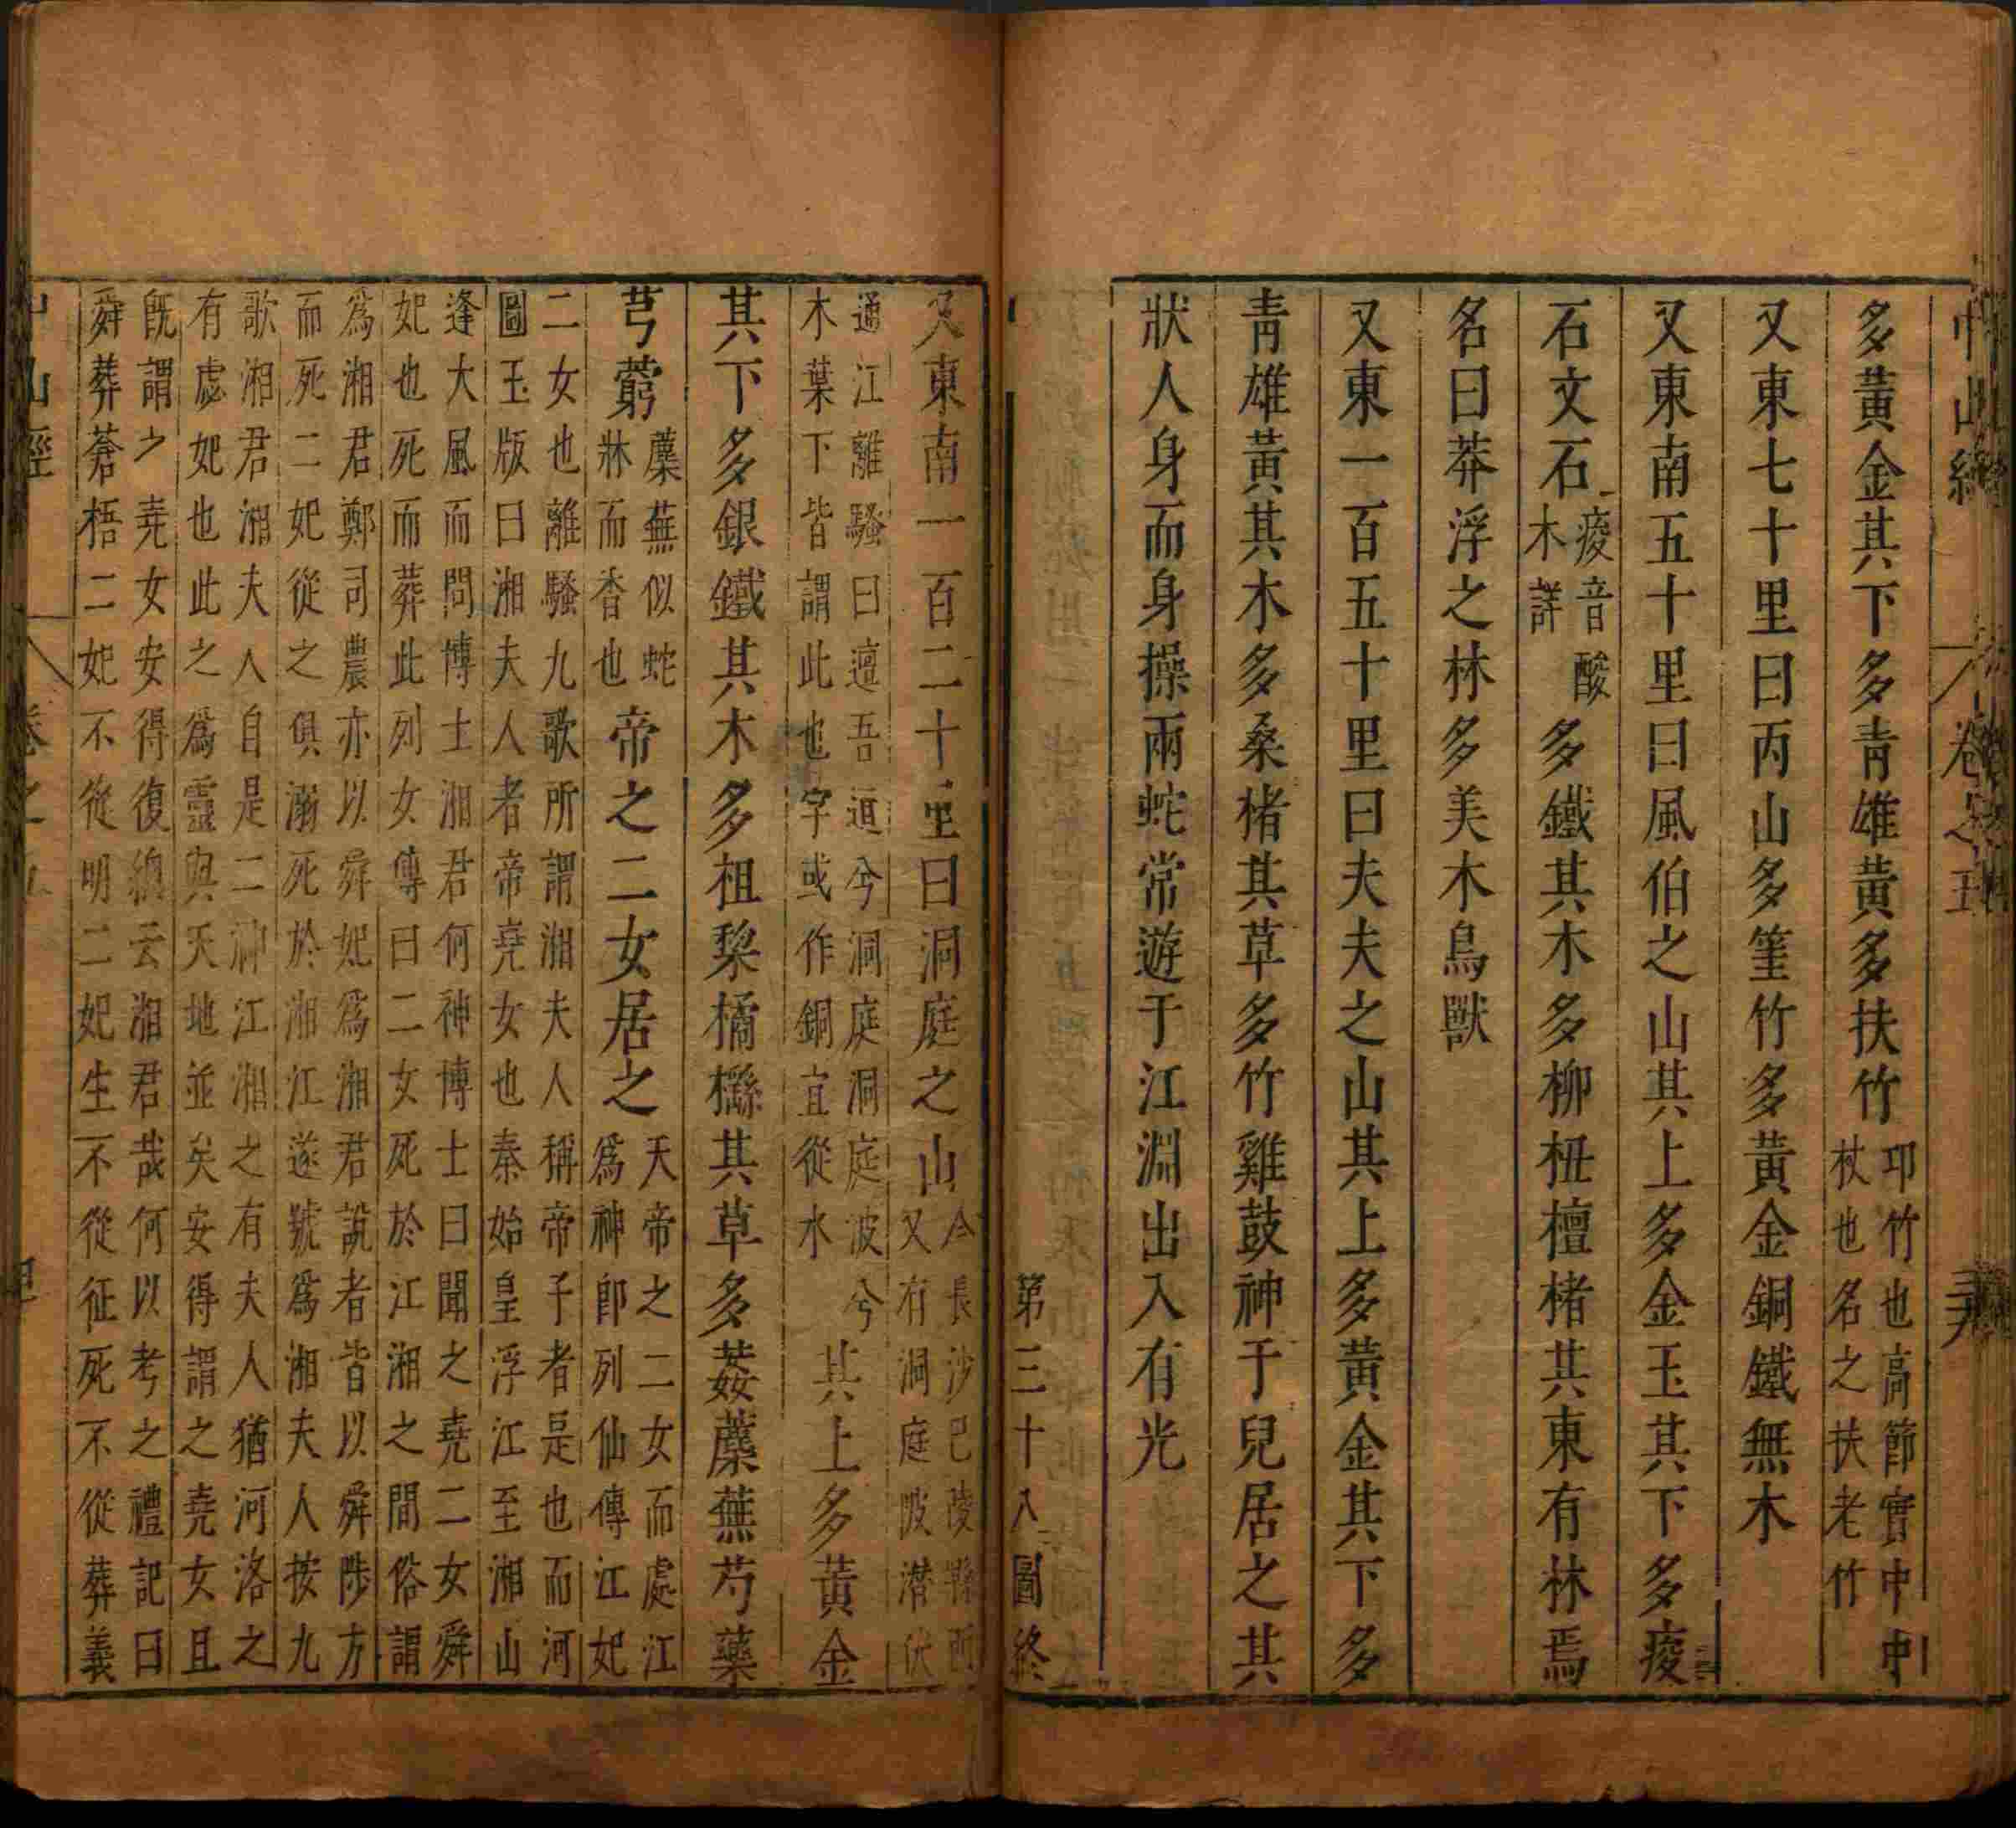 中山經 卷之五
多黃金其下多青雄黃多扶竹卭竹也高節實中中杖也名之扶老竹
又東七十里曰丙山多䈽竹多黃金銅鐵無木
又東南五十里曰風伯之山其上多金玉其下多痠
石文石痠音酸木詳多鐵其木多柳杻檀楮其東有林焉
名曰莽浮之林多美木鳥獸
又東一百五十里曰夫夫之山其上多黃金其下多
青雄黃其木多桑楮其草多竹雞鼓神于兒居之其
狀人身而身操兩蛇常遊于江淵出入有光
第三十八圖終
又東南一百二十里曰洞庭之山今長沙巴陵縣西又有洞庭陂潛伏
通江離騷曰邅吾道兮洞庭洞庭波兮木葉下皆謂此也字或作銅宜從水其上多黃金
其下多銀鐵其木多柤梨橘櫾其草多葌蘪蕪芍藥
芎藭蘪蕪似蛇牀而香也帝之二女居之天帝之二女而處江為神卽列仙傳江妃
二女也離騷九歌所謂湘夫人稱帝子者是也而河圖玉版曰湘夫人者帝堯女也秦始皇浮江至湘山
逢大風而問博士湘君何神博士曰聞之堯二女舜妃也死而葬此列女傳曰二女死於江湘之間俗謂
為湘君鄭司農亦以舜妃為湘君說者皆以舜陟方而死二妃從之俱溺死於湘江遂號為湘夫人按九
歌湘君湘夫人自是二神江湘之有夫人猶河洛之有虙妃也此之為靈與天地並矣安得謂之堯女且
旣謂之堯女安得復總云湘君哉何以考之禮記曰舜葬蒼梧二妃不從明二妃生不從征死不從葬義
中山經 卷之五